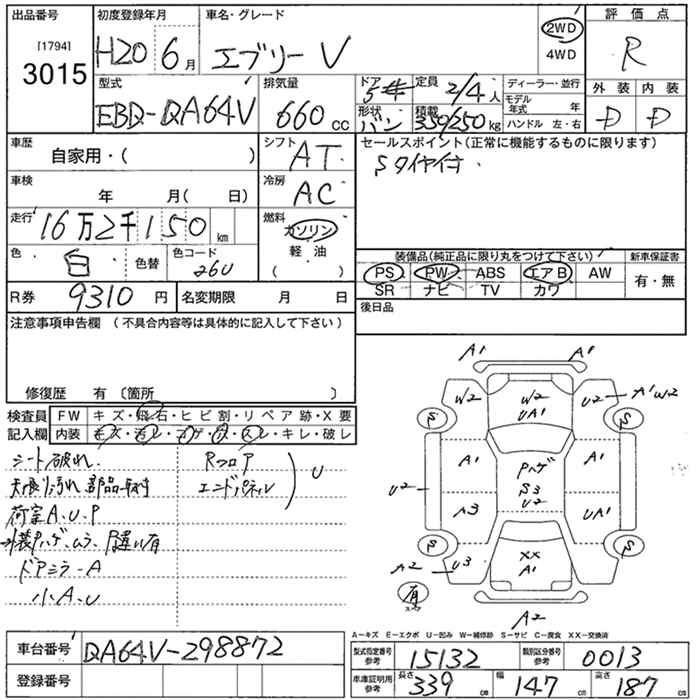 出品番号 初度登録年月 車名・グレード 評価点
[1794]
3015
H20 6月 エブリー V 2WD 4WD R
型式 排気量 ドア 定員 ディーラー・並行 外装 内装
EBD-DA64V 660cc 5 2/4人 モデル年式 年 D D
形状 バン 積載 350/250kg ハンドル 左・右
車歴 自家用・( ) シフト AT セールスポイント(正常に機能するものに限ります)
Sタイヤ付
車検 年 月( 日) 冷房 AC
走行 16万2千150km 燃料 ガソリン 軽・油 ( )
色 白 色替 色コード 26U
装備品(純正品に限り丸をつけて下さい) 新車保証書
PS PW ABS エアB AW 有・無
SR ナビ TV カワ
R券 9310円 名変期限 月 日 後日品
注意事項申告欄 (不具合内容等は具体的に記入して下さい)
修復歴 有 〔箇所 〕
検査員 FW キズ・飛石・ヒビ割・リペア跡・X要
記入欄 内装 キズ・汚レ・コゲ・穴・スレ・キレ・破レ
シート破れ Rフロア
天張り汚れ 部品取付 エンドパネル U
荷室A.U.P
外装Pハゲ.ムラ.色違い有
ドアミラーA
小A.U
A1 A1
W2 W2 UA1 U2 A1W2
S S
A1 Pハゲ A1
U2 S3 U2
A3 UA1
S S
A2 U3 XX A1
有
A2
A-キズ E-エクボ U-凹み W-補修跡 S-サビ C-腐食 XX-交換済
車台番号 DA64V-298872
登録番号
型式指定番号 参考 15132 類別区分番号 参考 0013
車庫証明用 参考 長さ 339cm 幅 147cm 高さ 187cm